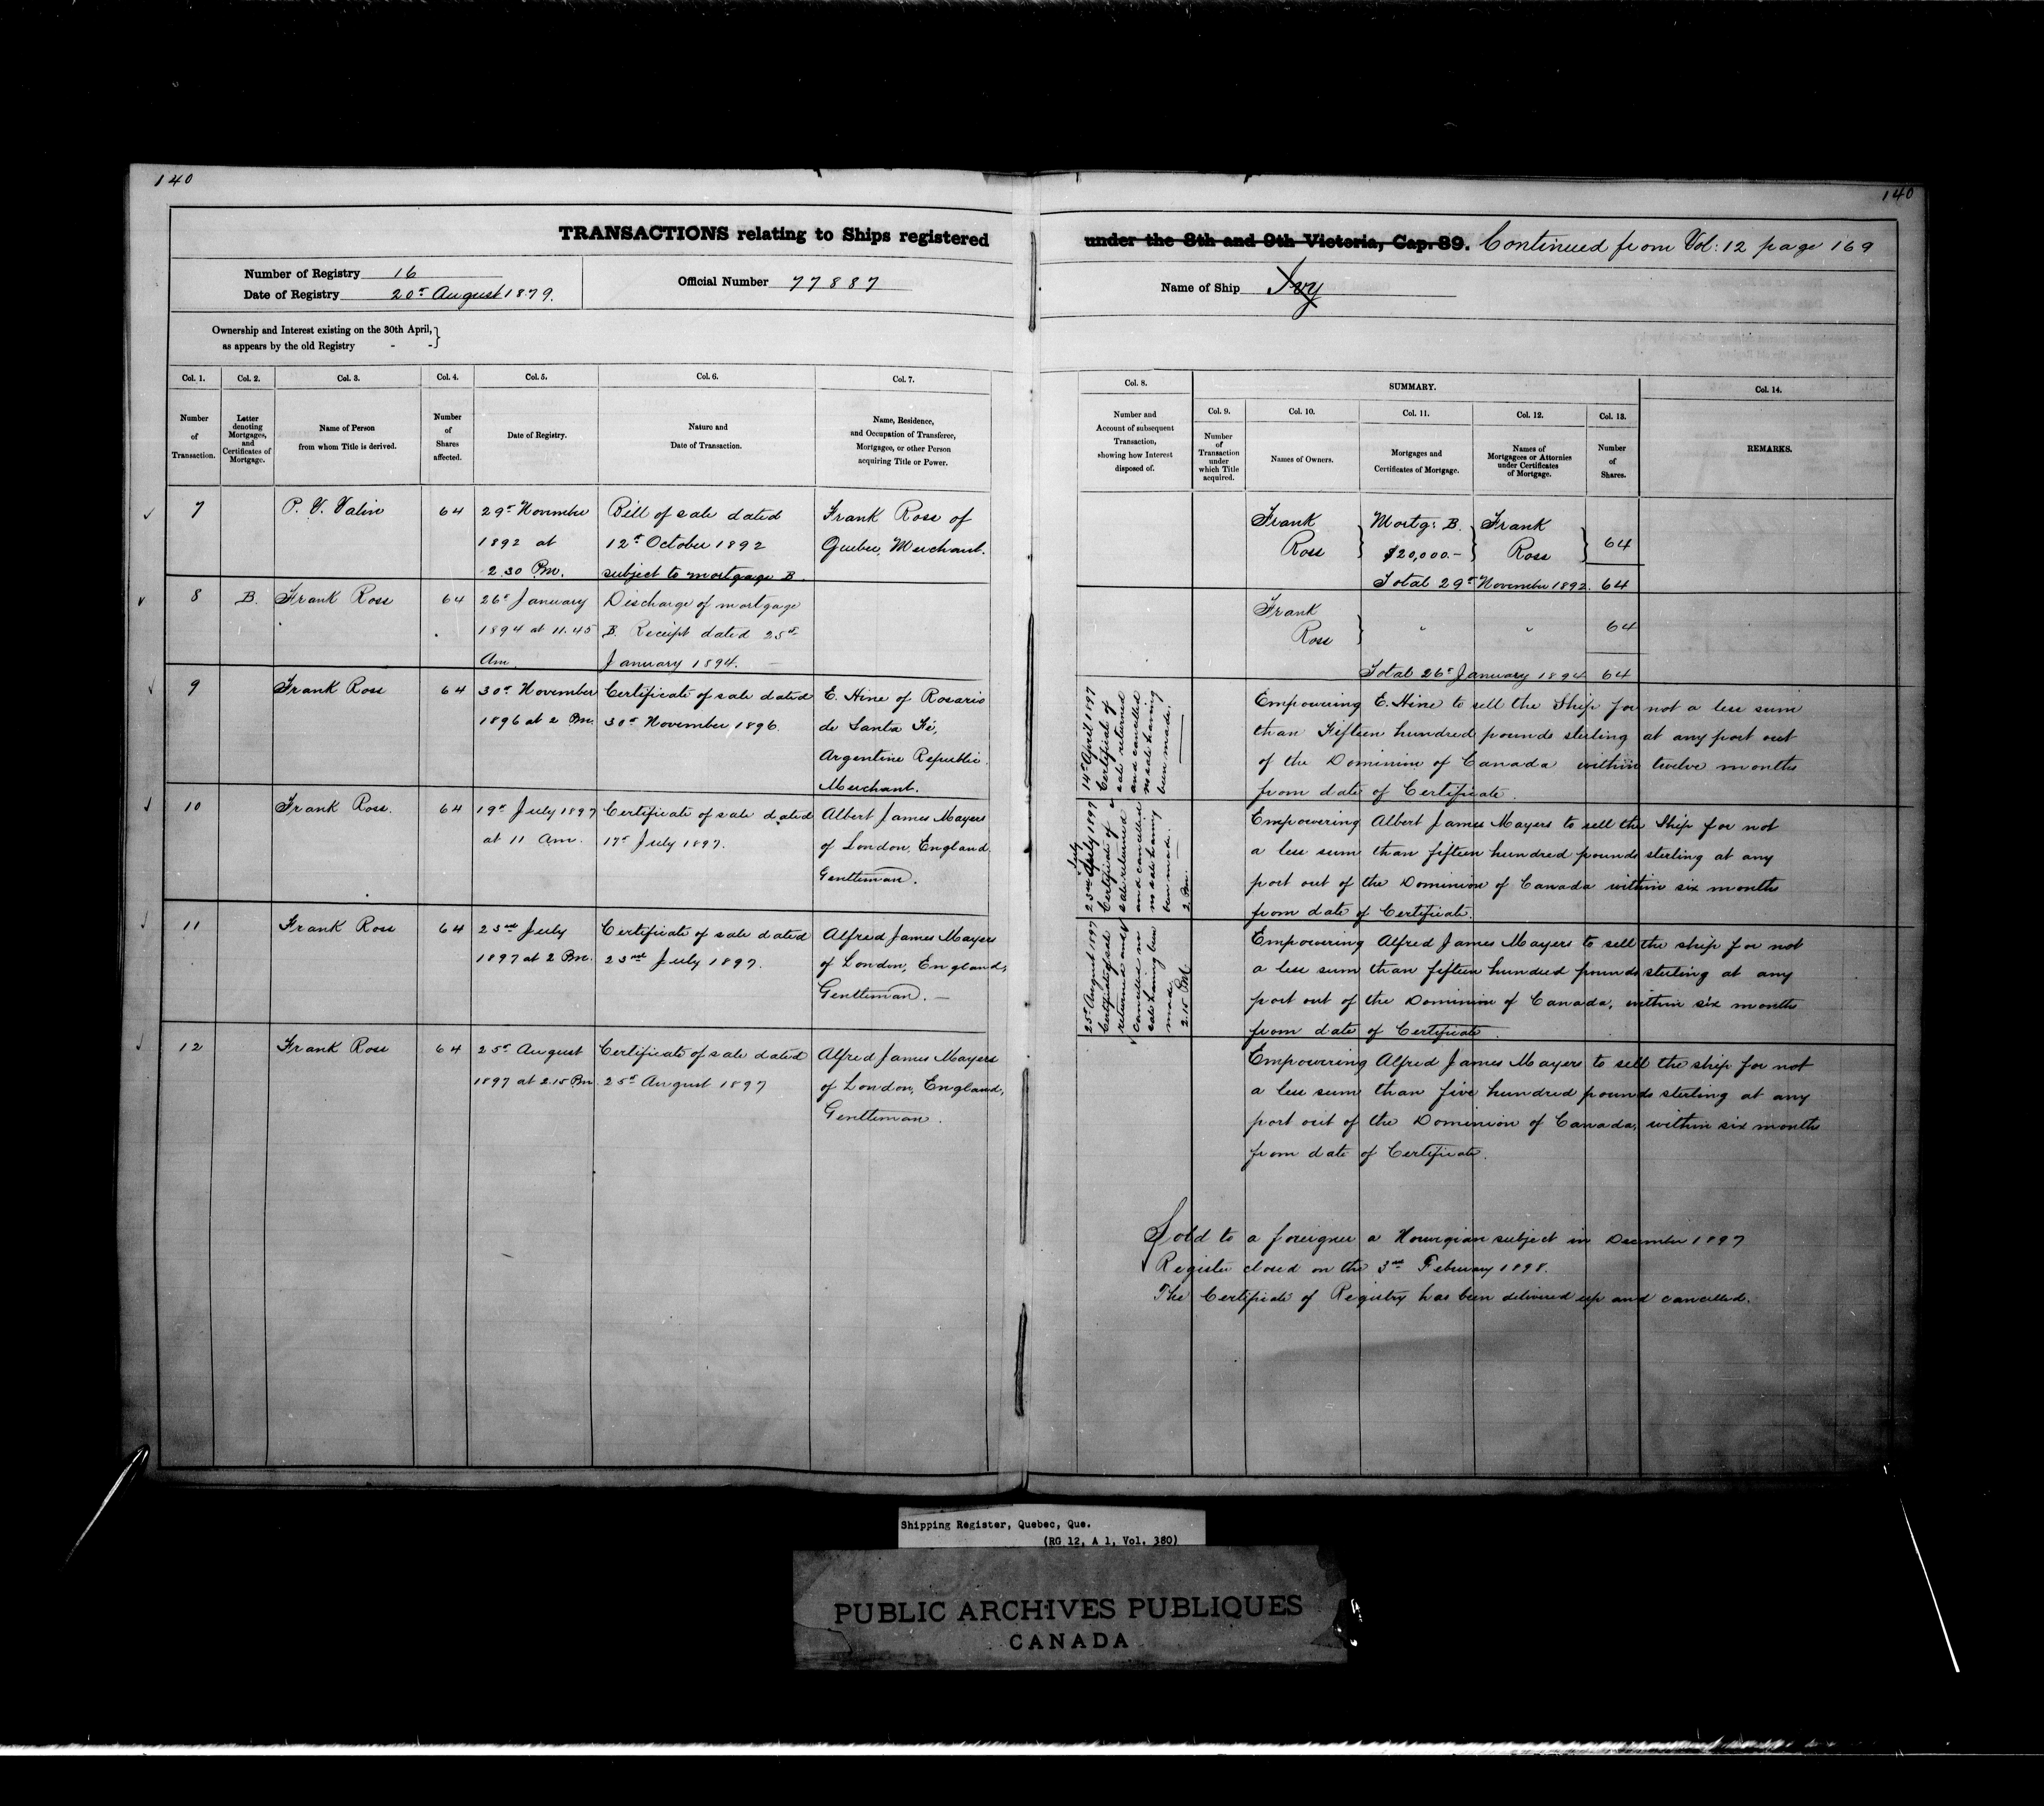 140
140
TRANSACTIONS relating to Ships registered
under the 8th and 9th Victoria, Cap. 89. Continued from Vol: 12 page 169
Number of Registry 16
Date of Registry 20th August 1879.
Official Number 77887
Name of Ship Ivy
Ownership and Interest existing on the 30th April,
as appears by the old Registry - -
Col. 1.
Number
of
Transaction.
Col. 2.
Letter
denoting
Mortgages,
and
Certificates of
Mortgage.
Col. 3.
Name of Person
from whom Title is derived.
Col. 4.
Number
of
Shares
affected.
Col. 5.
Date of Registry.
Col. 6.
Nature and
Date of Transaction.
Col. 7.
Name, Residence,
and Occupation of Transferee,
Mortgagee, or other Person
acquiring Title or Power.
Col. 8.
Number and
Account of subsequent
Transaction,
showing how Interest
disposed of.
SUMMARY.
Col. 9.
Number
of
Transaction
under
which Title
acquired.
Col. 10.
Names of Owners.
Col. 11.
Mortgages and
Certificates of Mortgage.
Col. 12.
Names of
Mortgagees or Attornies
under Certificates
of Mortgage.
Col. 13.
Number
of
Shares.
Col. 14.
REMARKS.
7
P. V. Valin
64
29th November
1892 at
2.30 Pm.
Bill of sale dated
12th October 1892
subject to mortgage B
Frank Ross of
Quebec, Merchant.
Frank
Ross
Mortg: B.
$20,000.-
Frank
Ross
64
Total 29th November 1892. 64
8
B.
Frank Ross
64
26th January
1894 at 11.45
Am.
Discharge of mortgage
B. Receipt dated 25th
January 1894. -
Frank
Ross
"
"
64
Total 26th January 1894 64
9
Frank Ross
64
30th November
1896 at 2 Pm.
Certificate of sale dated
30th November 1896.
E. Hine of Rosario
de Santa Fé,
Argentine Republic.
Merchant.
14th April 1897
Certificate of
sale returned
and cancelled
no sale having
been made.
Empowering E. Hine to sell the Ship for not a less sum
than Fifteen hundred pounds sterling at any port out
of the Dominion of Canada within twelve months
from date of Certificate.
10
Frank Ross.
64
19th July 1897
at 11 Am.
Certificate of sale dated
17th July 1897.
Albert James Mayers
of London, England,
Gentleman.
July
23rd April 1897
Certificate of
sale returned
and cancelled
no sale having
been made.
2 Pm.
Empowering Albert James Mayers to sell the Ship for not
a less sum than fifteen hundred pounds sterling at any
port out of the Dominion of Canada within six months
from date of Certificate.
11
Frank Ross
64
23rd July
1897 at 2 Pm.
Certificate of sale dated
23rd July 1897.
Alfred James Mayers
of London, England,
Gentleman. -
25th August 1897
Certificate of sale
returned and
cancelled no
sale having been
made
2.15 PM.
Empowering Alfred James Mayers to sell the ship for not
a less sum than fifteen hundred pounds sterling at any
port out of the Dominion of Canada, within six months
from date of Certificate
12
Frank Ross
64
25th August
1897 at 2.15 Pm
Certificate of sale dated
25th August 1897
Alfred James Mayers
of London, England,
Gentleman.
Empowering Alfred James Mayers to sell the ship for not
a less sum than five hundred pounds sterling at any
port out of the Dominion of Canada, within six months
from date of Certificate.
Sold to a foreigner a Norwigian subject in December 1897
Register closed on the 3rd February 1898.
The Certificate of Registry has been delivered up and cancelled.
Shipping Register, Quebec, Que.
(RG 12, A 1, Vol. 380)
PUBLIC ARCHIVES PUBLIQUES
CANADA